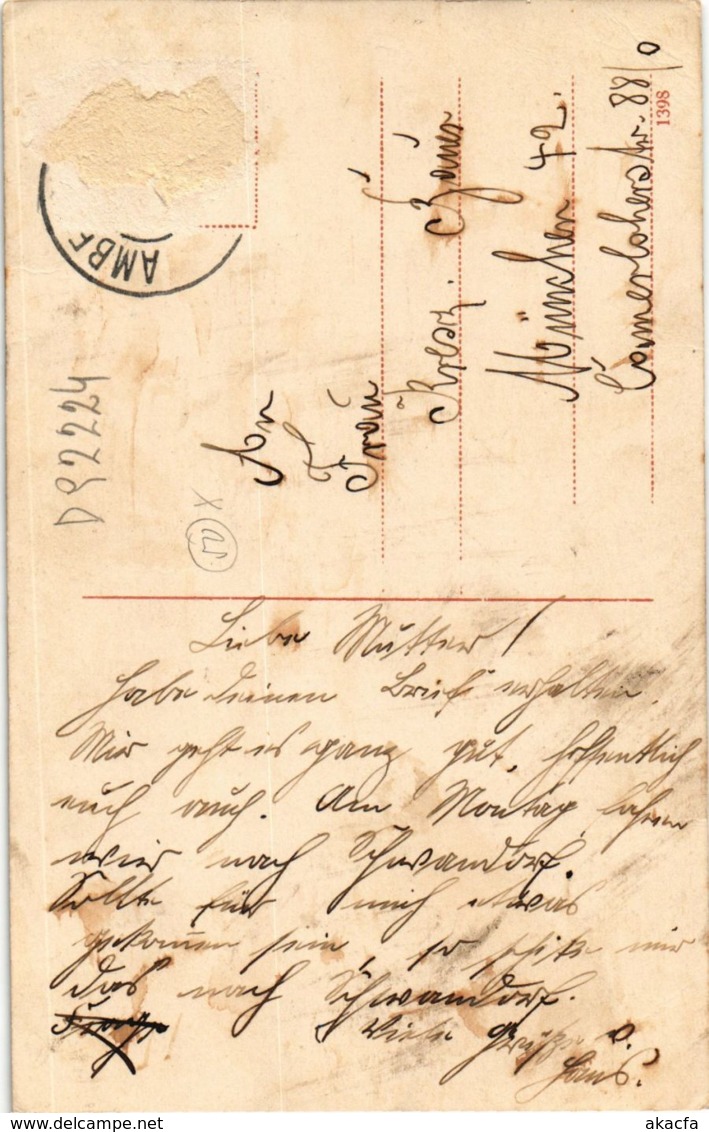 AMBE
D92224
An
Frau
Kresz.
München 42.
Camerloherstr. 88/0
1398
Liebe Mutter!
habe deinen Brief erhalten.
Mir geht es ganz gut, hoffentlich
euch auch. Am Montag fahren
wir nach Schwandorf.
Sollte für mich etwas
gekommen sein, so schike mir
das nach Schwandorf.
Viele Grüße v.
Hans.
www.delcampe.net
akacfa